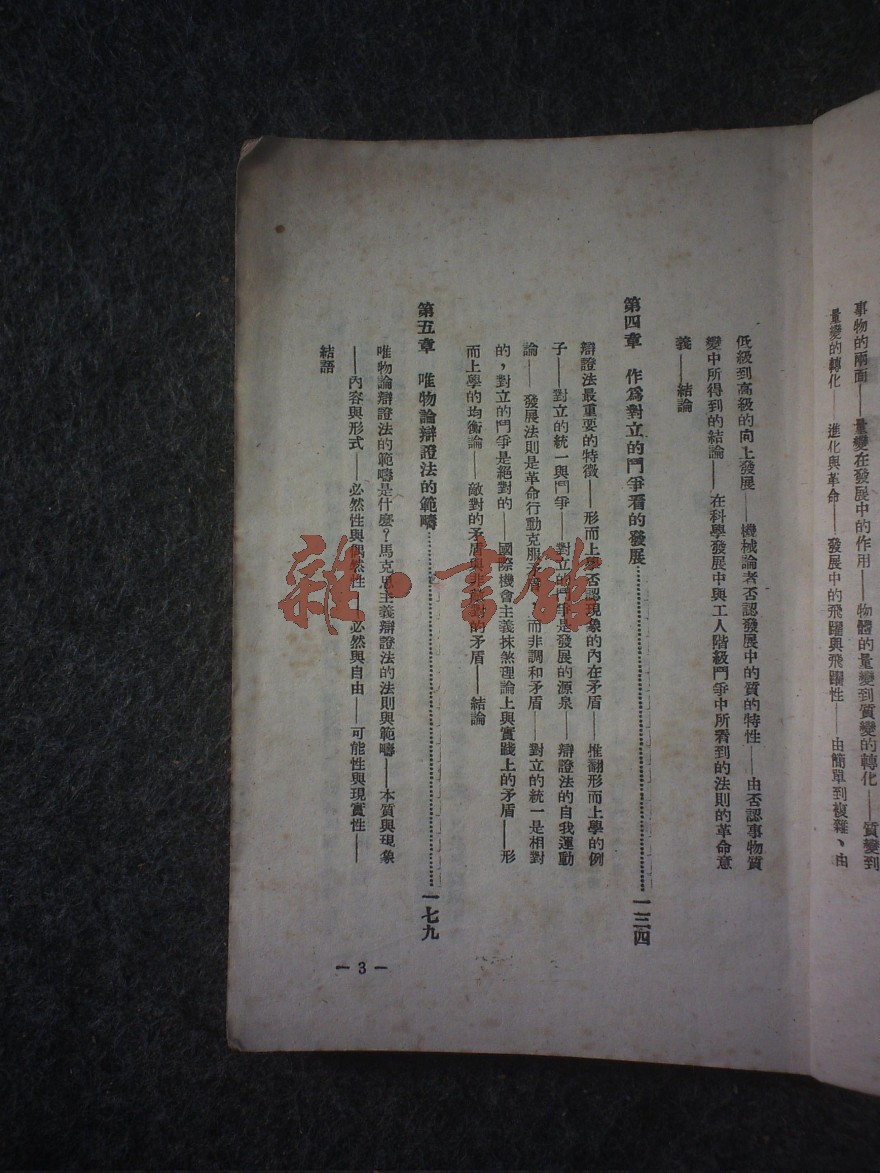 事物的兩面——量變在發展中的作用——物體的量變到質變的轉化——質變到
量變的轉化——進化與革命——發展中的飛躍與飛躍性——由簡單到複雜、由
低級到高級的向上發展——機械論者否認發展中的質的特性——由否認事物質
變中所得到的結論——在科學發展中與工人階級鬥爭中所看到的法則的革命意
義——結論
第四章 作爲對立的鬥爭看的發展……一三四
辯證法最重要的特徵——形而上學否認現象的內在矛盾——推翻形而上學的例
子——對立的統一與鬥爭——對立的鬥爭是發展的源泉——辯證法的自我運動
論——發展法則是革命行動克服矛盾——而非調和矛盾——對立的統一是相對
的，對立的鬥爭是絕對的——國際機會主義抹煞理論上與實踐上的矛盾——形
而上學的均衡論——敵對的矛盾與非敵對的矛盾——結論
第五章 唯物論辯證法的範疇……一七九
唯物論辯證法的範疇是什麼？馬克思主義辯證法的法則與範疇——本質與現象
——內容與形式——必然性與偶然性——必然與自由——可能性與現實性——
結語
— 3 —
雜·書館